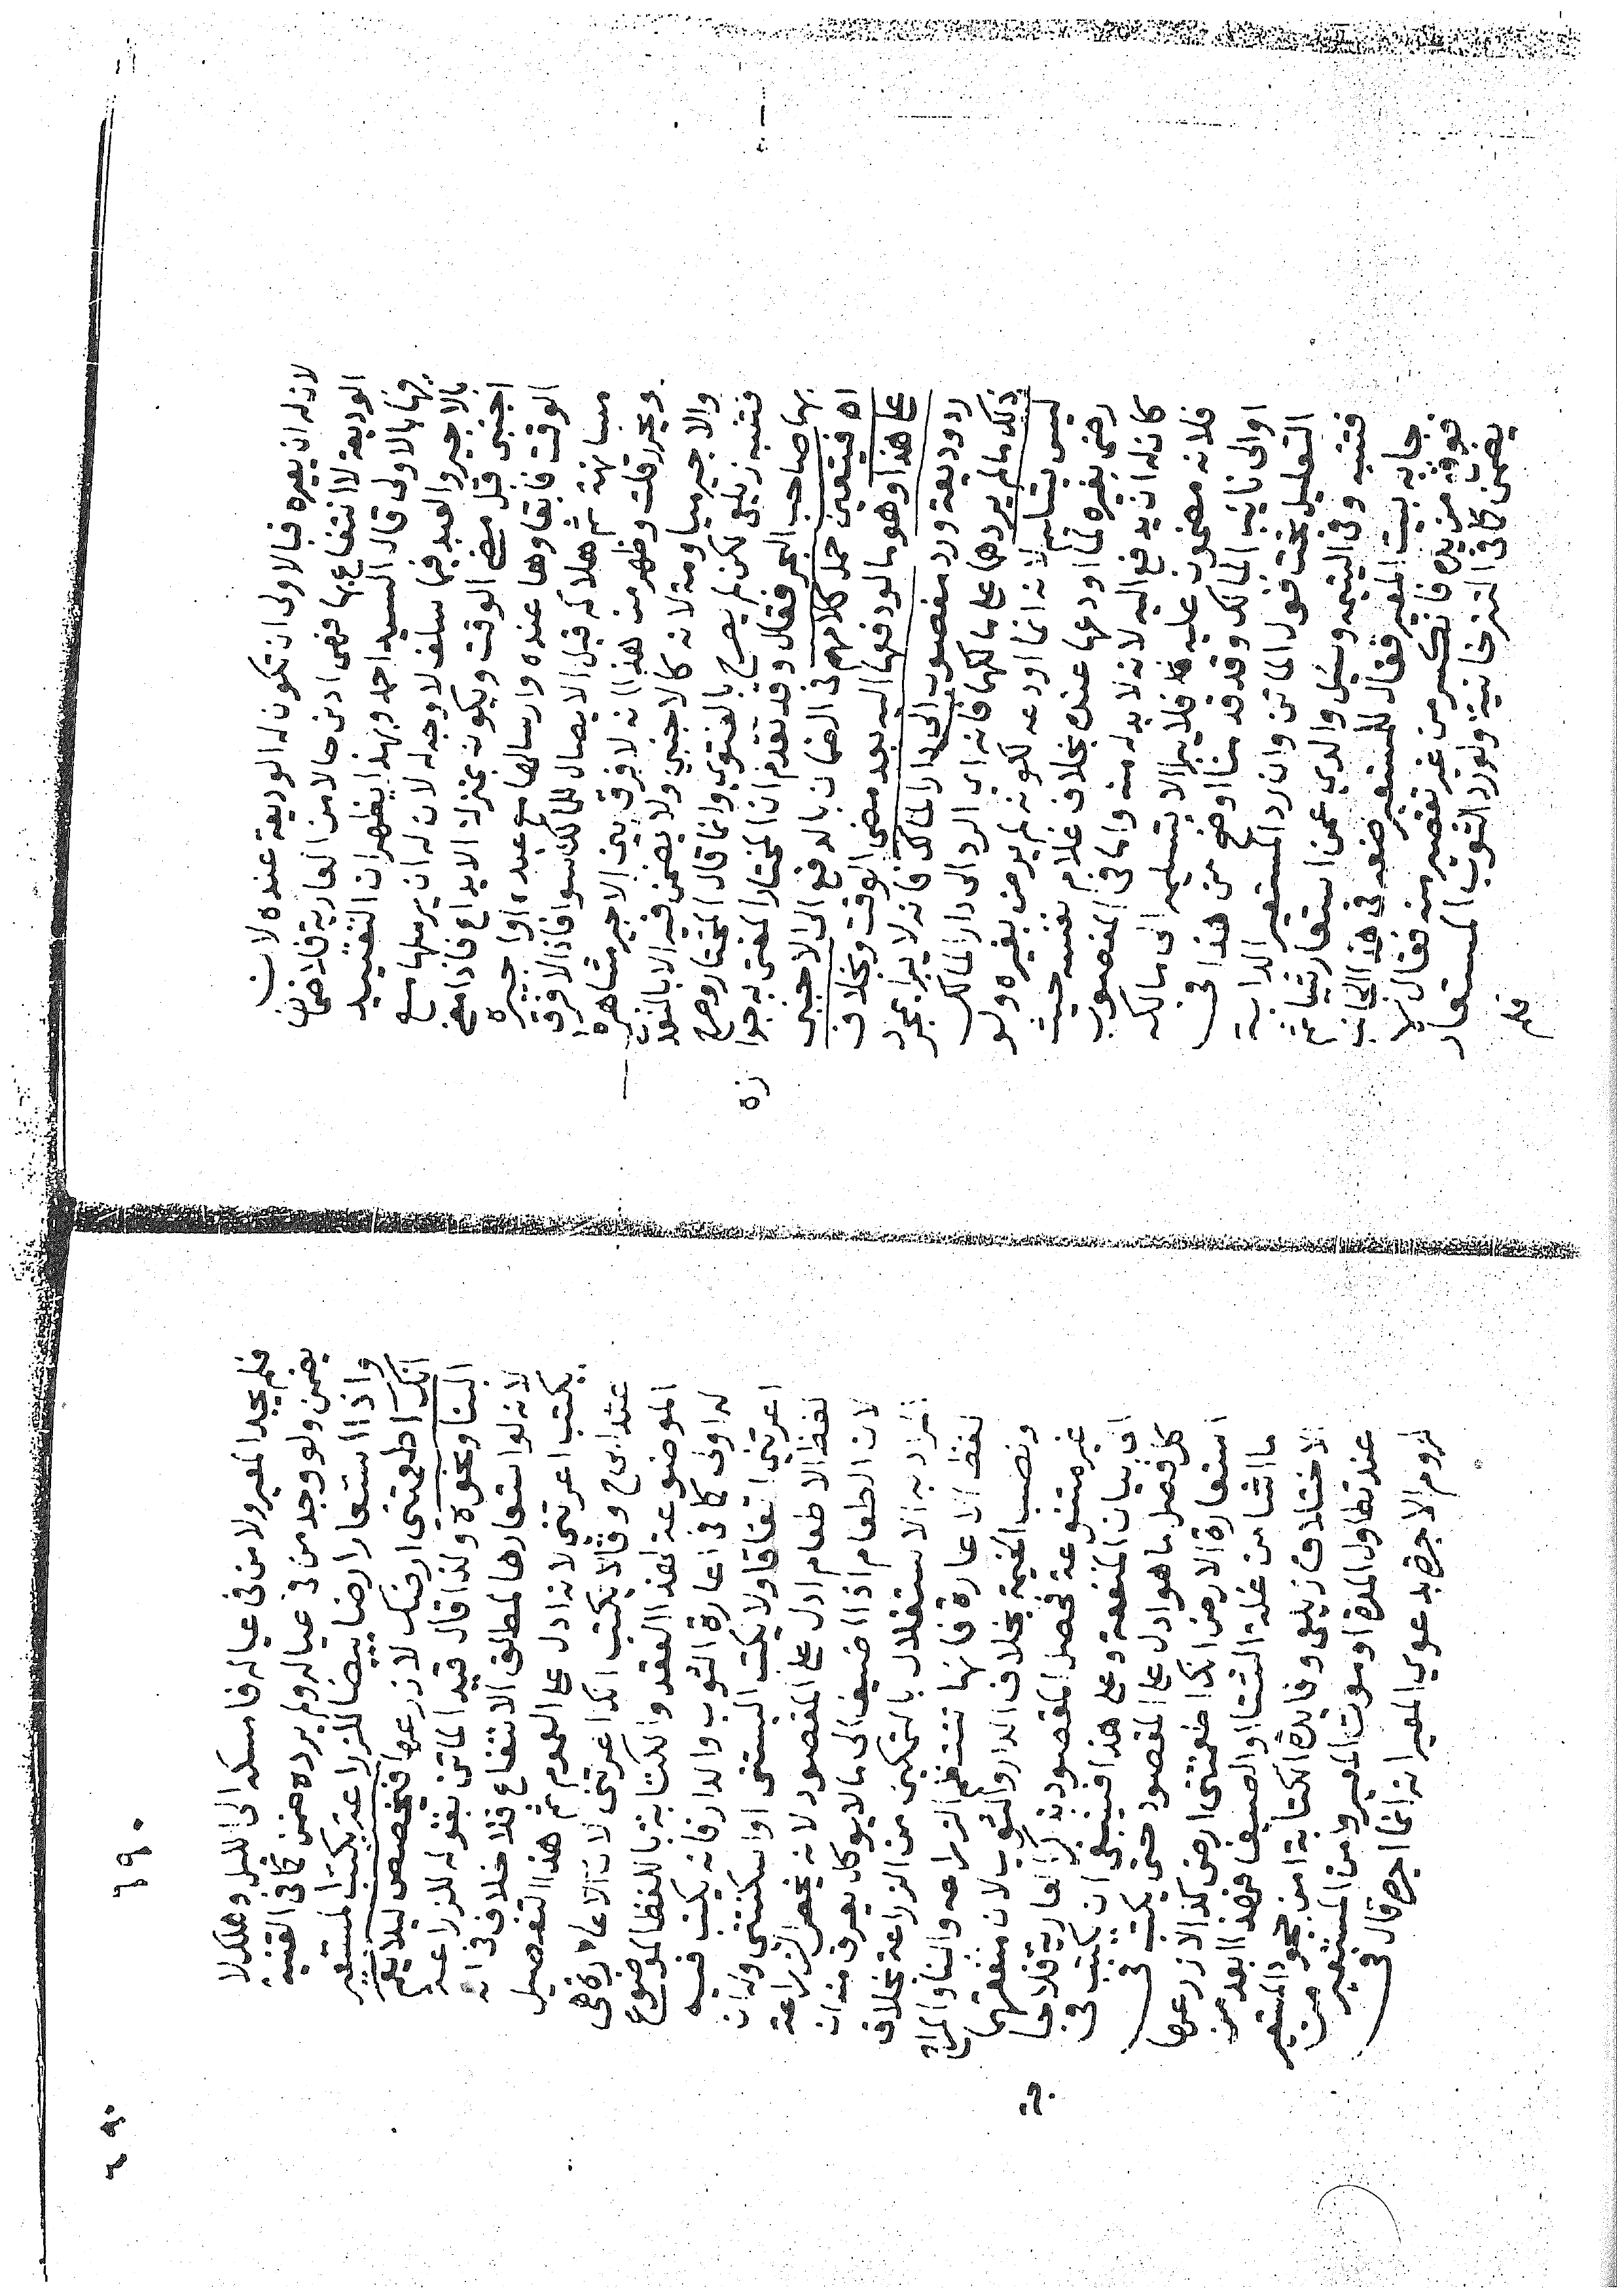 لان له ان يعيره فبالاولى ان تكون له الوديعة عنده لان
الوديعة لا انتفاع بها فهى ادنى حالا من العارية فلا ضمان
فيها بالاولى قال السيد احمد وبهذا يظهر ان التقييد
بالاجير والعبد فيما سلف لا وجه له لان له ان يرسلها مع
اجنبى قبل مضى الوقت ويكون بمنزلة الايداع فاذا مضى
الوقت فابقاوها عنده وارسالها مع عبده او اجيره
مسانهة ثم هلاكه قبل الايصال للمالك سوا فاذا لا فرق
ويحرر قلت وظهر من هذا انه لا فرق بين الاجير مشاهرة
والاجير مياومة لانه كالاجنبى ولا يضمن فيه الا بالتعدى
فتنبه زيلعى لكن لم يصرح بالفتوى وانما قال المختار وصرح
بها صاحب البحر فقال وقد تقدم ان المختار المفتى به جوا زه
اه فيتعين حمل كلامهم فى الضمان بالدفع الى الاجنبى
على هذا وهو ما لو دفعها اليه بعد مضى الوقت وبخلاف
رد وديعة ورد مغصوب الى دار المالك فانه لا يبرا بمجرد
ذلك ما لم يردها على مالكها فانه اى الرد الى دار المالك
ليس بتسليم لانه انما اودعه لكونه لم يرض بغيره ولو
رضى بغيره لما اودعها عنده بخلاف غلام نفسه حيث
كان له ان يدفع اليه لانه لابد له منه واما فى المغصوب
فلانه مضمون عليه فلا يبرا الا بتسليمه الى مالكه
او الى نائبه المالك وقد قدمنا اوضح من هذا فى
التعليل تحت قول الماتن وان رد المستعير الدابة
فتنبه وفى اليتيمه وسئل والدى عمن استعار شيا
جا به بيت المعير فقال للمستعير ضعه فى هذا الجانب
فوقع من يده فانكسر من غير تقصير منه فقال لا
يضمن كما فى التترخانية ولو رد الثوب المستعار
فلم
٦٩٠
٦٩٠
فلم يجد المعير ولا من فى عياله فامسكه الى الليل وهلك لا
يضمن ولو وجد من فى عياله ولم يرده ضمن كما فى القنية
واذا استعار ارضا بيضا للزراعة يكتب المستعير
انك اطعمتنى ارضك لازرعها فيخصص ليلا يعم
البنا ونحوه ولذا قال قيد الماتن بقوله للزراعة
لانه لو استعارها لمطلق الانتفاع فلا خلاف فى انه
يكتب اعرتنى لانه ادل على العموم ثم هذا التفصيل
عند ابى ح وقالا يكتب انك اعرتنى لان الاعارة هى
الموضوعة لهذا العقد والكتابة باللفظ الموضوع
له اولى كما فى اعارة الثوب والدار فانه يكتب فيه
اعرتنى اتفاقا ولا يكتب البستنى او اسكنتنى وله ان
لفظ الاطعام ادل على المقصود لانه يخص الزراعة
لان الطعام اذا اضيف الى ما لا يوكل يعرف منه ان
المراد به الاستغلال بالتمكين من الزراعة بخلاف
لفظ الاعارة فانها تنتظم الزراعه والبنا والمراح
ونصب الخيمة بخلاف الدار والثوب لان منفعتهما
غير متنوعة فحصل المقصود بذكر العارية فلا حا جة
الى بيان المنفعة وعلى هذا فينبغى ان يكتب فى
كل فصل ما هو ادل على المقصود حتى يكتب فى
استعارة الارض انك اطعمتنى ارض كذا لازرعها
ما اشا من غلة الشتا او الصيف فهذا ابعد من
الاختلاف زيلعى وفايدة الكتابة امن جحود المستعير
عند تطاول المدة او موت المعير وامن المستعير من
لزوم الاجرة بدعوى المعير انه انما اجره قال فى